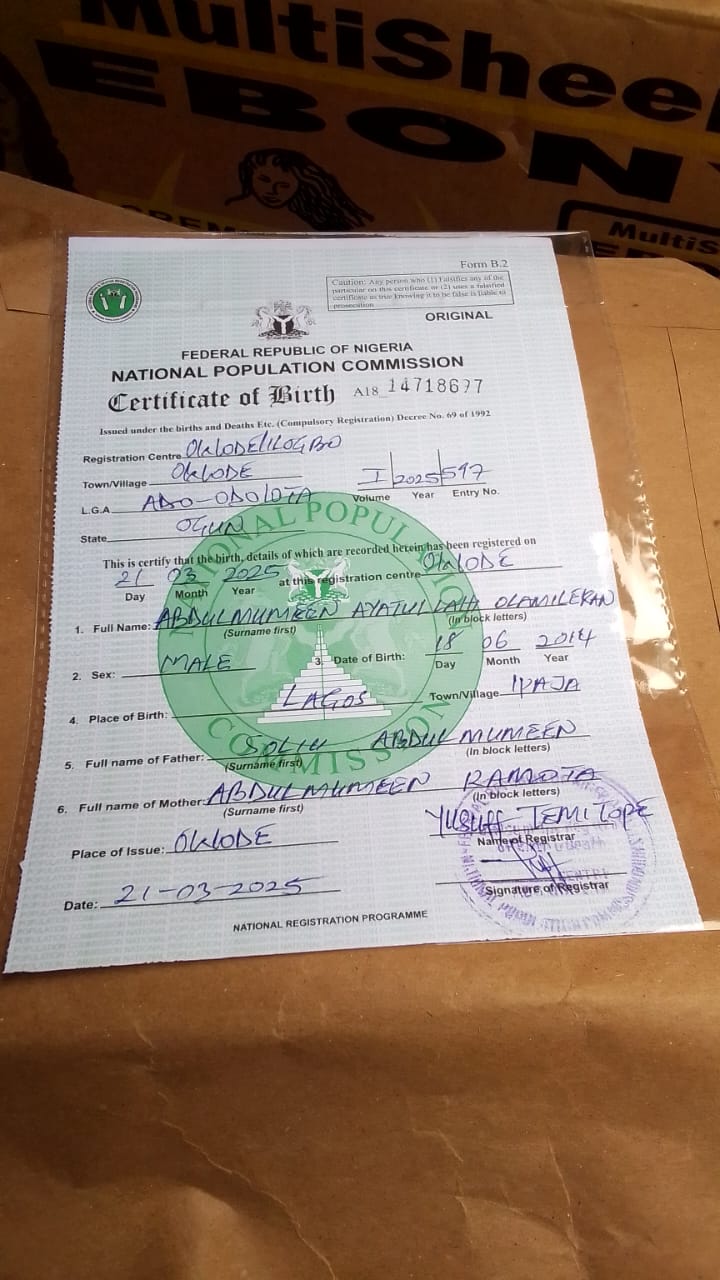 MultiShee
EBONY
MultiS
Form B.2
Caution: Any person who (1) Falsifies any of the
particular on this certificate or (2) uses a falsified
certificate as true knowing it to be false is liable to
prosecution
ORIGINAL
FEDERAL REPUBLIC OF NIGERIA
NATIONAL POPULATION COMMISSION
Certificate of Birth A18 14718697
Issued under the births and Deaths Etc. (Compulsory Registration) Decree No. 69 of 1992
Registration Centre OKLODE/ILOGBO
Town/Village OKLODE
I 2025 597
Volume Year Entry No.
L.G.A ADO-ODO/OTA
State OGUN
This is certify that the birth, details of which are recorded herein has been registered on
21 03 2025 at this registration centre OKLODE
Day Month Year
1. Full Name: ABDULMUMEEN AYATULLAHI OLAMILEKAN
(Surname first) (In block letters)
2. Sex: MALE 3. Date of Birth: 18 06 2014
Day Month Year
4. Place of Birth: LAGOS Town/Village IPAJA
5. Full name of Father: SOLIU ABDULMUMEEN
(Surname first) (In block letters)
6. Full name of Mother: ABDULMUMEEN RAMOTA
(Surname first) (In block letters)
Place of Issue: OKLODE
YUSUFF TEMITOPE
Name of Registrar
Signature of Registrar
Date: 21-03-2025
NATIONAL REGISTRATION PROGRAMME
NATIONAL POPULATION
COMMISSION